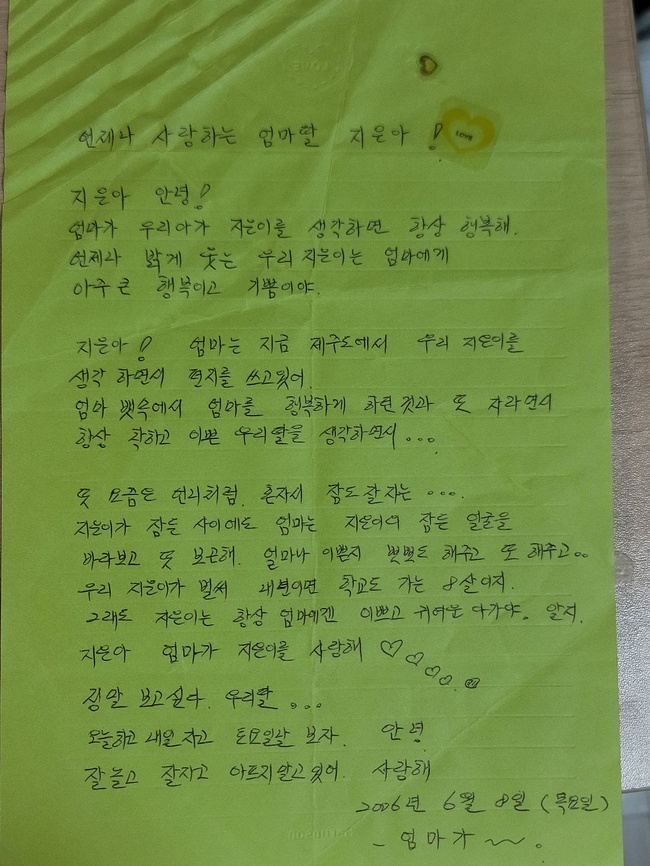 언제나 사랑하는 엄마딸 지은아! love
지은아 안녕!
엄마가 우리아가 지은이를 생각하면 항상 행복해.
언제나 밝게 웃은 우리 지은이는 엄마에게
아주 큰 행복이고 기쁨이야.
지은아! 엄마는 지금 제주도에서 우리 지은이를
생각 하면서 편지를 쓰고있어.
엄마 뱃속에서 엄마를 행복하게 하던것과 또 자라면서
항상 착하고 이쁜 우리딸을 생각하면서...
또 요즘은 언니처럼. 혼자서 잠도 잘 자는 ....
지은이가 잠든 사이에도 엄마는 지은이의 잠든 얼굴을
바라보고 또 보곤해. 얼마나 이쁜지 뽀뽀도 해주고 또 해주고..
우리 지은이가 벌써 내년이면 학교도 가는 8살이지.
그래도 지은이는 항상 엄마에겐 이쁘고 귀여운 아가야. 알지.
지은아 엄마가 지은이를 사랑해 ♡♡♡♡♡
정말 보고싶다. 우리딸 ...
오늘하고 내일 자고 토요일날 보자. 안녕
잘 놀고 잘자고 아프지말고 있어. 사랑해
2006년 6월 8일 (목요일)
- 엄마가 ~~.